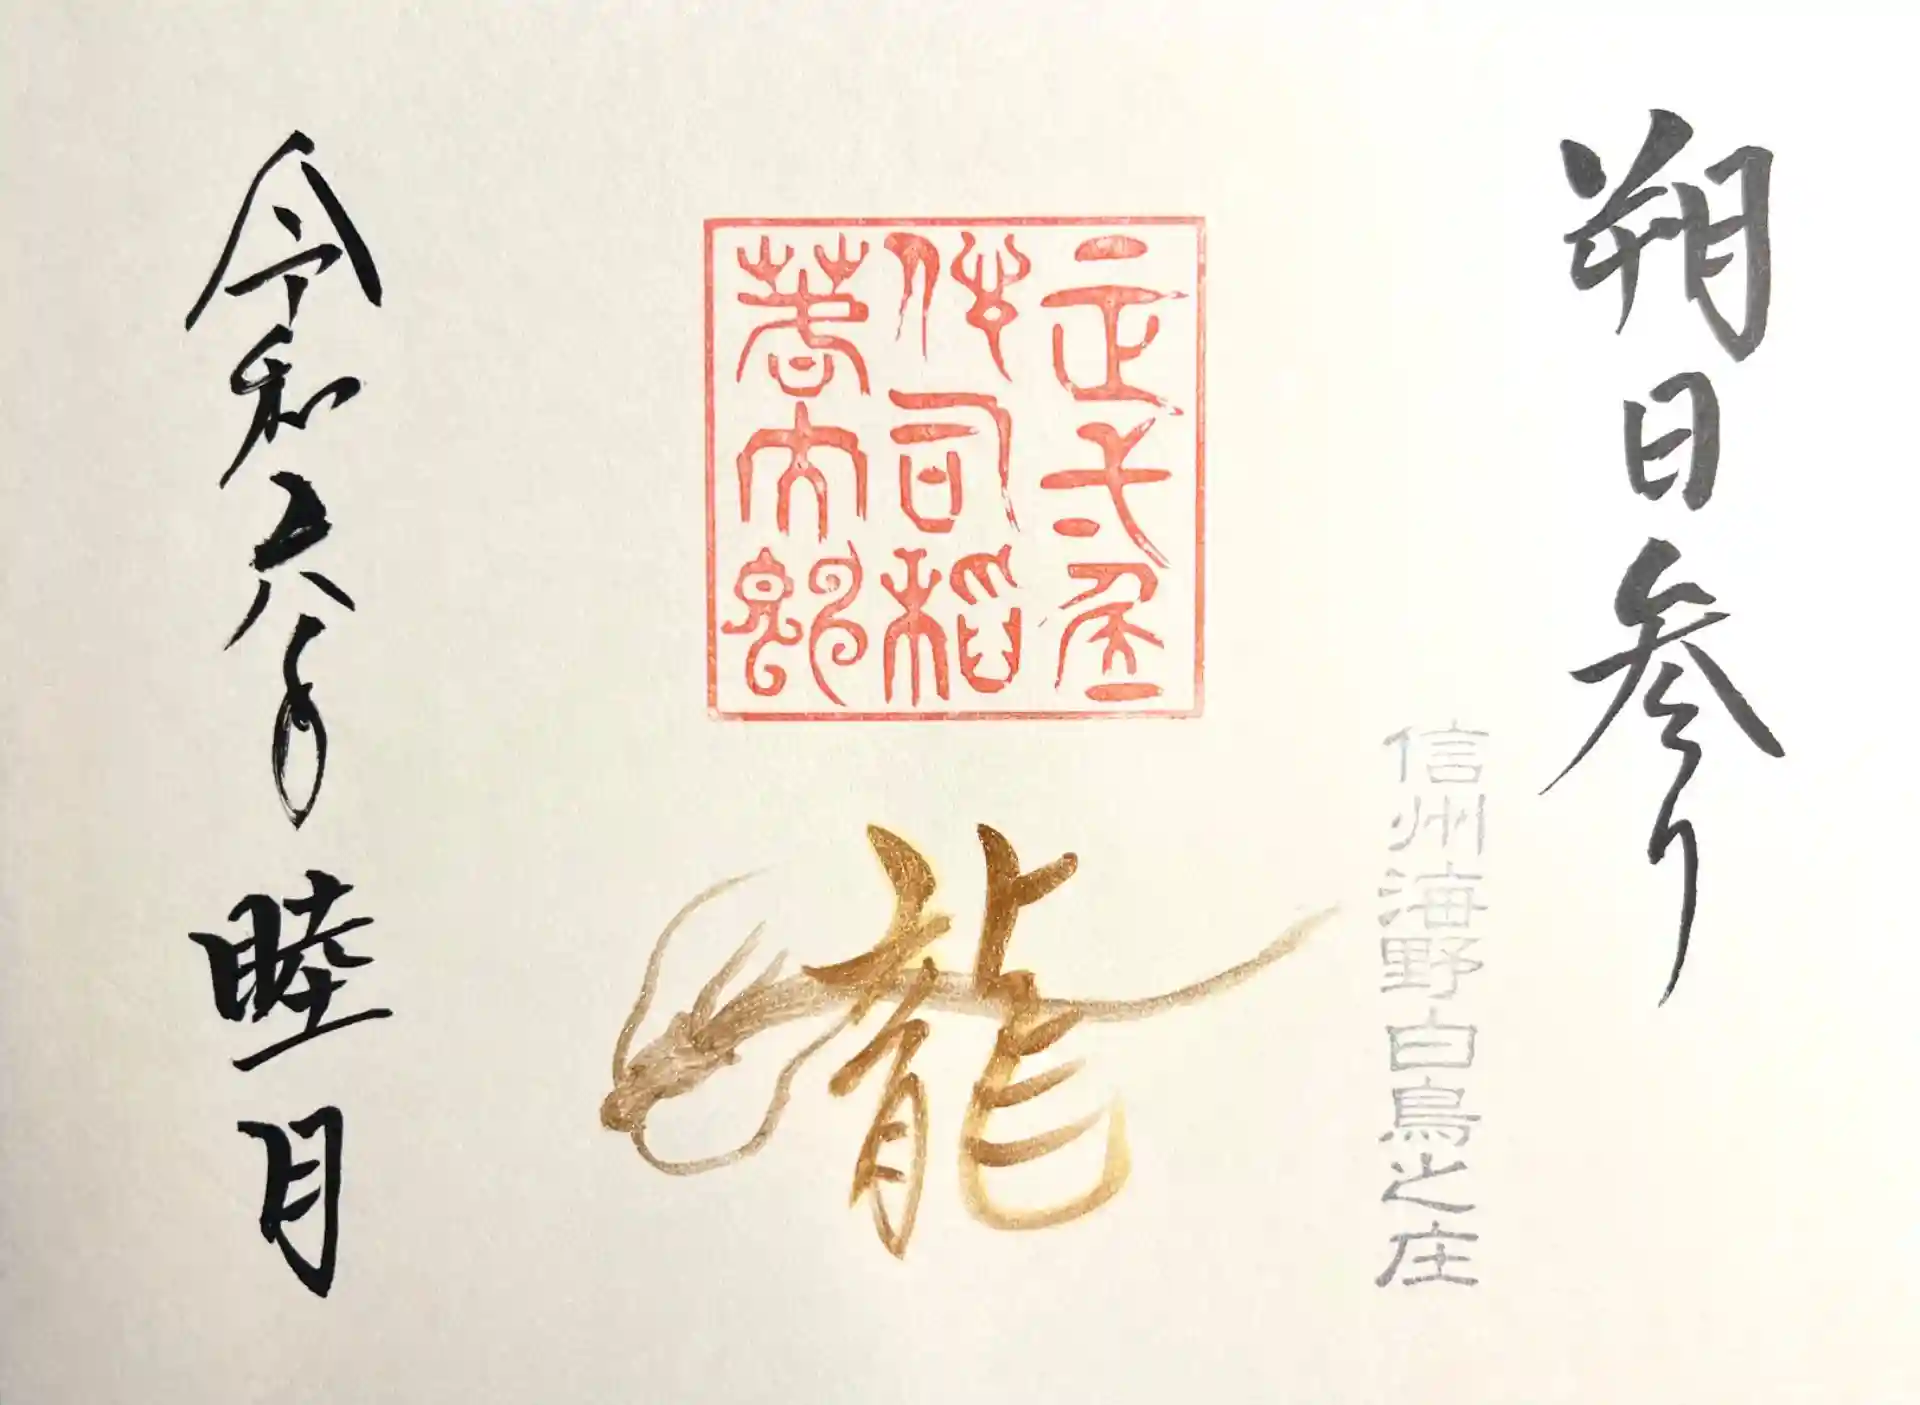 朔日参り
信州海野白鳥之庄
龍
令和六年睦月